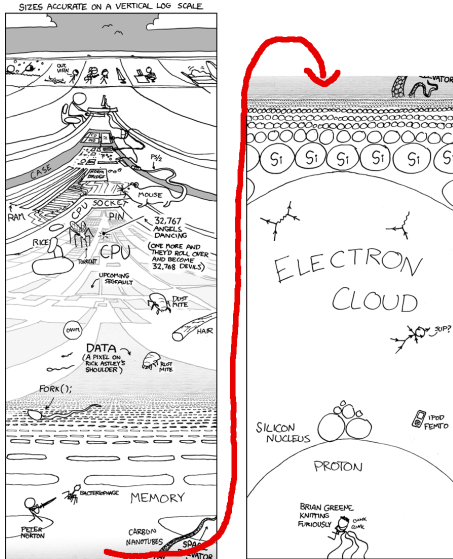 SIZES ACCURATE ON A VERTICAL LOG SCALE
OUR
VIEW
PS/2
CASE
MOUSE
RAM
CPU SOCKET
PIN
32,767
ANGELS
DANCING
(ONE MORE AND
THEY'D ROLL OVER
AND BECOME
32,768 DEVILS)
RICE
TORRENT
CPU
UPCOMING
SEGFAULT
DUST
MITE
OVUM
HAIR
DATA
(A PIXEL ON
RICK ASTLEY'S
SHOULDER)
RUST
MITE
FORK();
BACTERIOPHAGE
MEMORY
PETER
NORTON
CARBON
NANOTUBES
SPACE
VATOR
VATOR
Si Si Si Si Si Si
ELECTRON
CLOUD
SUP?
IPOD
FEMTO
SILICON
NUCLEUS
PROTON
BRIAN GREENE
KNITTING
FURIOUSLY